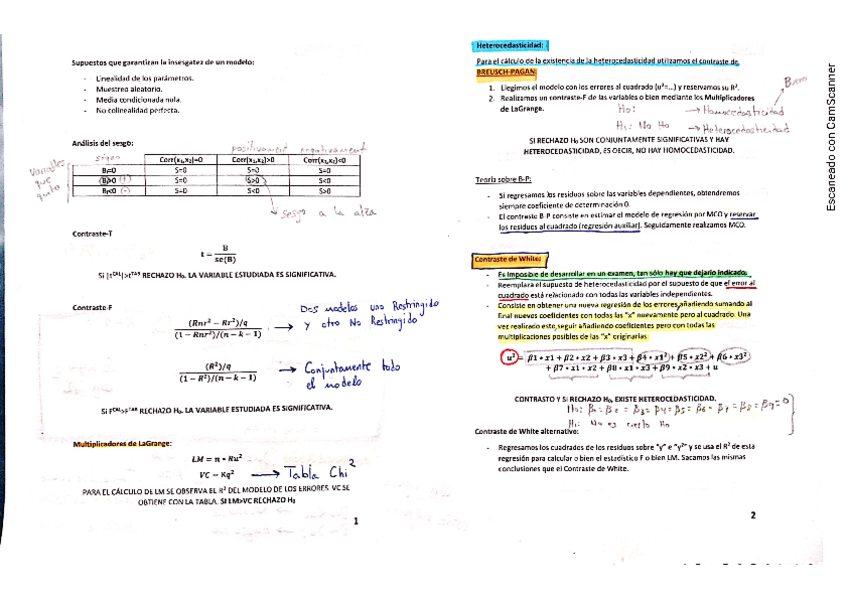 Supuestos que garantizan la insesgatez de un modelo:
- Linealidad de los parámetros.
- Muestreo aleatorio.
- Media condicionada nula.
- No colinealidad perfecta.
Análisis del sesgo:
positivament negativament
Variables que
signo
Corr(x₁,x₂)=0 Corr(x₁,x₂)>0 Corr(x₁,x₂)<0
B=0 S=0 S=0 S=0
B>0 (+) S=0 S>0 S<0
B<0 (-) S=0 S<0 S>0
→ sesgo a la alza
Contraste-T
t = B / se(B)
Si |tᶜᴬᴸ|>tᵀᴬᴮ RECHAZO H₀. LA VARIABLE ESTUDIADA ES SIGNIFICATIVA.
Contraste-F
(Rnr² − Rr²)/q / (1 − Rnr²)/(n − k − 1) → Dos modelos uno Restringido
y otro No Restringido
(R²)/q / (1 − R²)/(n − k − 1) → Conjuntamente todo
el modelo
Si Fᶜᴬᴸ>Fᵀᴬᴮ RECHAZO H₀. LA VARIABLE ESTUDIADA ES SIGNIFICATIVA.
Multiplicadores de LaGrange:
LM = n • Ru²
VC − Kq² → Tabla Chi²
PARA EL CÁLCULO DE LM SE OBSERVA EL R² DEL MODELO DE LOS ERRORES. VC SE
OBTIENE CON LA TABLA. SI LM>VC RECHAZO H₀
1
Heterocedasticidad:
Para el cálculo de la existencia de la heterocedasticidad utilizamos el contraste de
BREUSCH-PAGAN:
1. Elegimos el modelo con los errores al cuadrado (u²=…) y reservamos su R².
2. Realizamos un contraste-F de las variables o bien mediante los Multiplicadores
de LaGrange.
Bueno
Ho: → Homocedasticidad
H₁: No Ho → Heterocedasticidad
SI RECHAZO H₀ SON CONJUNTAMENTE SIGNIFICATIVAS Y HAY
HETEROCEDASTICIDAD, ES DECIR, NO HAY HOMOCEDASTICIDAD.
Teoría sobre B-P:
- Si regresamos los residuos sobre las variables dependientes, obtendremos
siempre coeficiente de determinación 0.
- El contraste B-P consiste en estimar el modelo de regresión por MCO y reservar
los residuos al cuadrado (regresión auxiliar). Seguidamente realizamos MCO.
Contraste de White:
- Es imposible de desarrollar en un examen, tan sólo hay que dejarlo indicado.
- Reemplara el supuesto de heterocedasticidad por el supuesto de que el error al
cuadrado está relacionado con todas las variables independientes.
- Consiste en obtener una nueva regresión de los errores,añadiendo sumando al
final nuevos coeficientes con todas las "x" nuevamente pero al cuadrado. Una
vez realizado esto,seguir añadiendo coeficientes pero con todas las
multiplicaciones posibles de las "x" originarias
u² = β1 • x1 + β2 • x2 + β3 • x3 + β4 • x1² + β5 • x2² + β6 • x3²
+ β7 • x1 • x2 + β8 • x1 • x3 + β9 • x2 • x3 + u
CONTRASTO Y SI RECHAZO H₀, EXISTE HETEROCEDASTICIDAD.
Ho: β₁ = β₂ = β₃ = β₄ = β₅ = β₆ = β₇ = β₈ = β₉ = 0
H₁: No es cierto Ho
Contraste de White alternativo:
- Regresamos los cuadrados de los residuos sobre "y" e "y²" y se usa el R² de está
regresión para calcular o bien el estadístico F o bien LM. Sacamos las mismas
conclusiones que el Contraste de White.
2
Escaneado con CamScanner